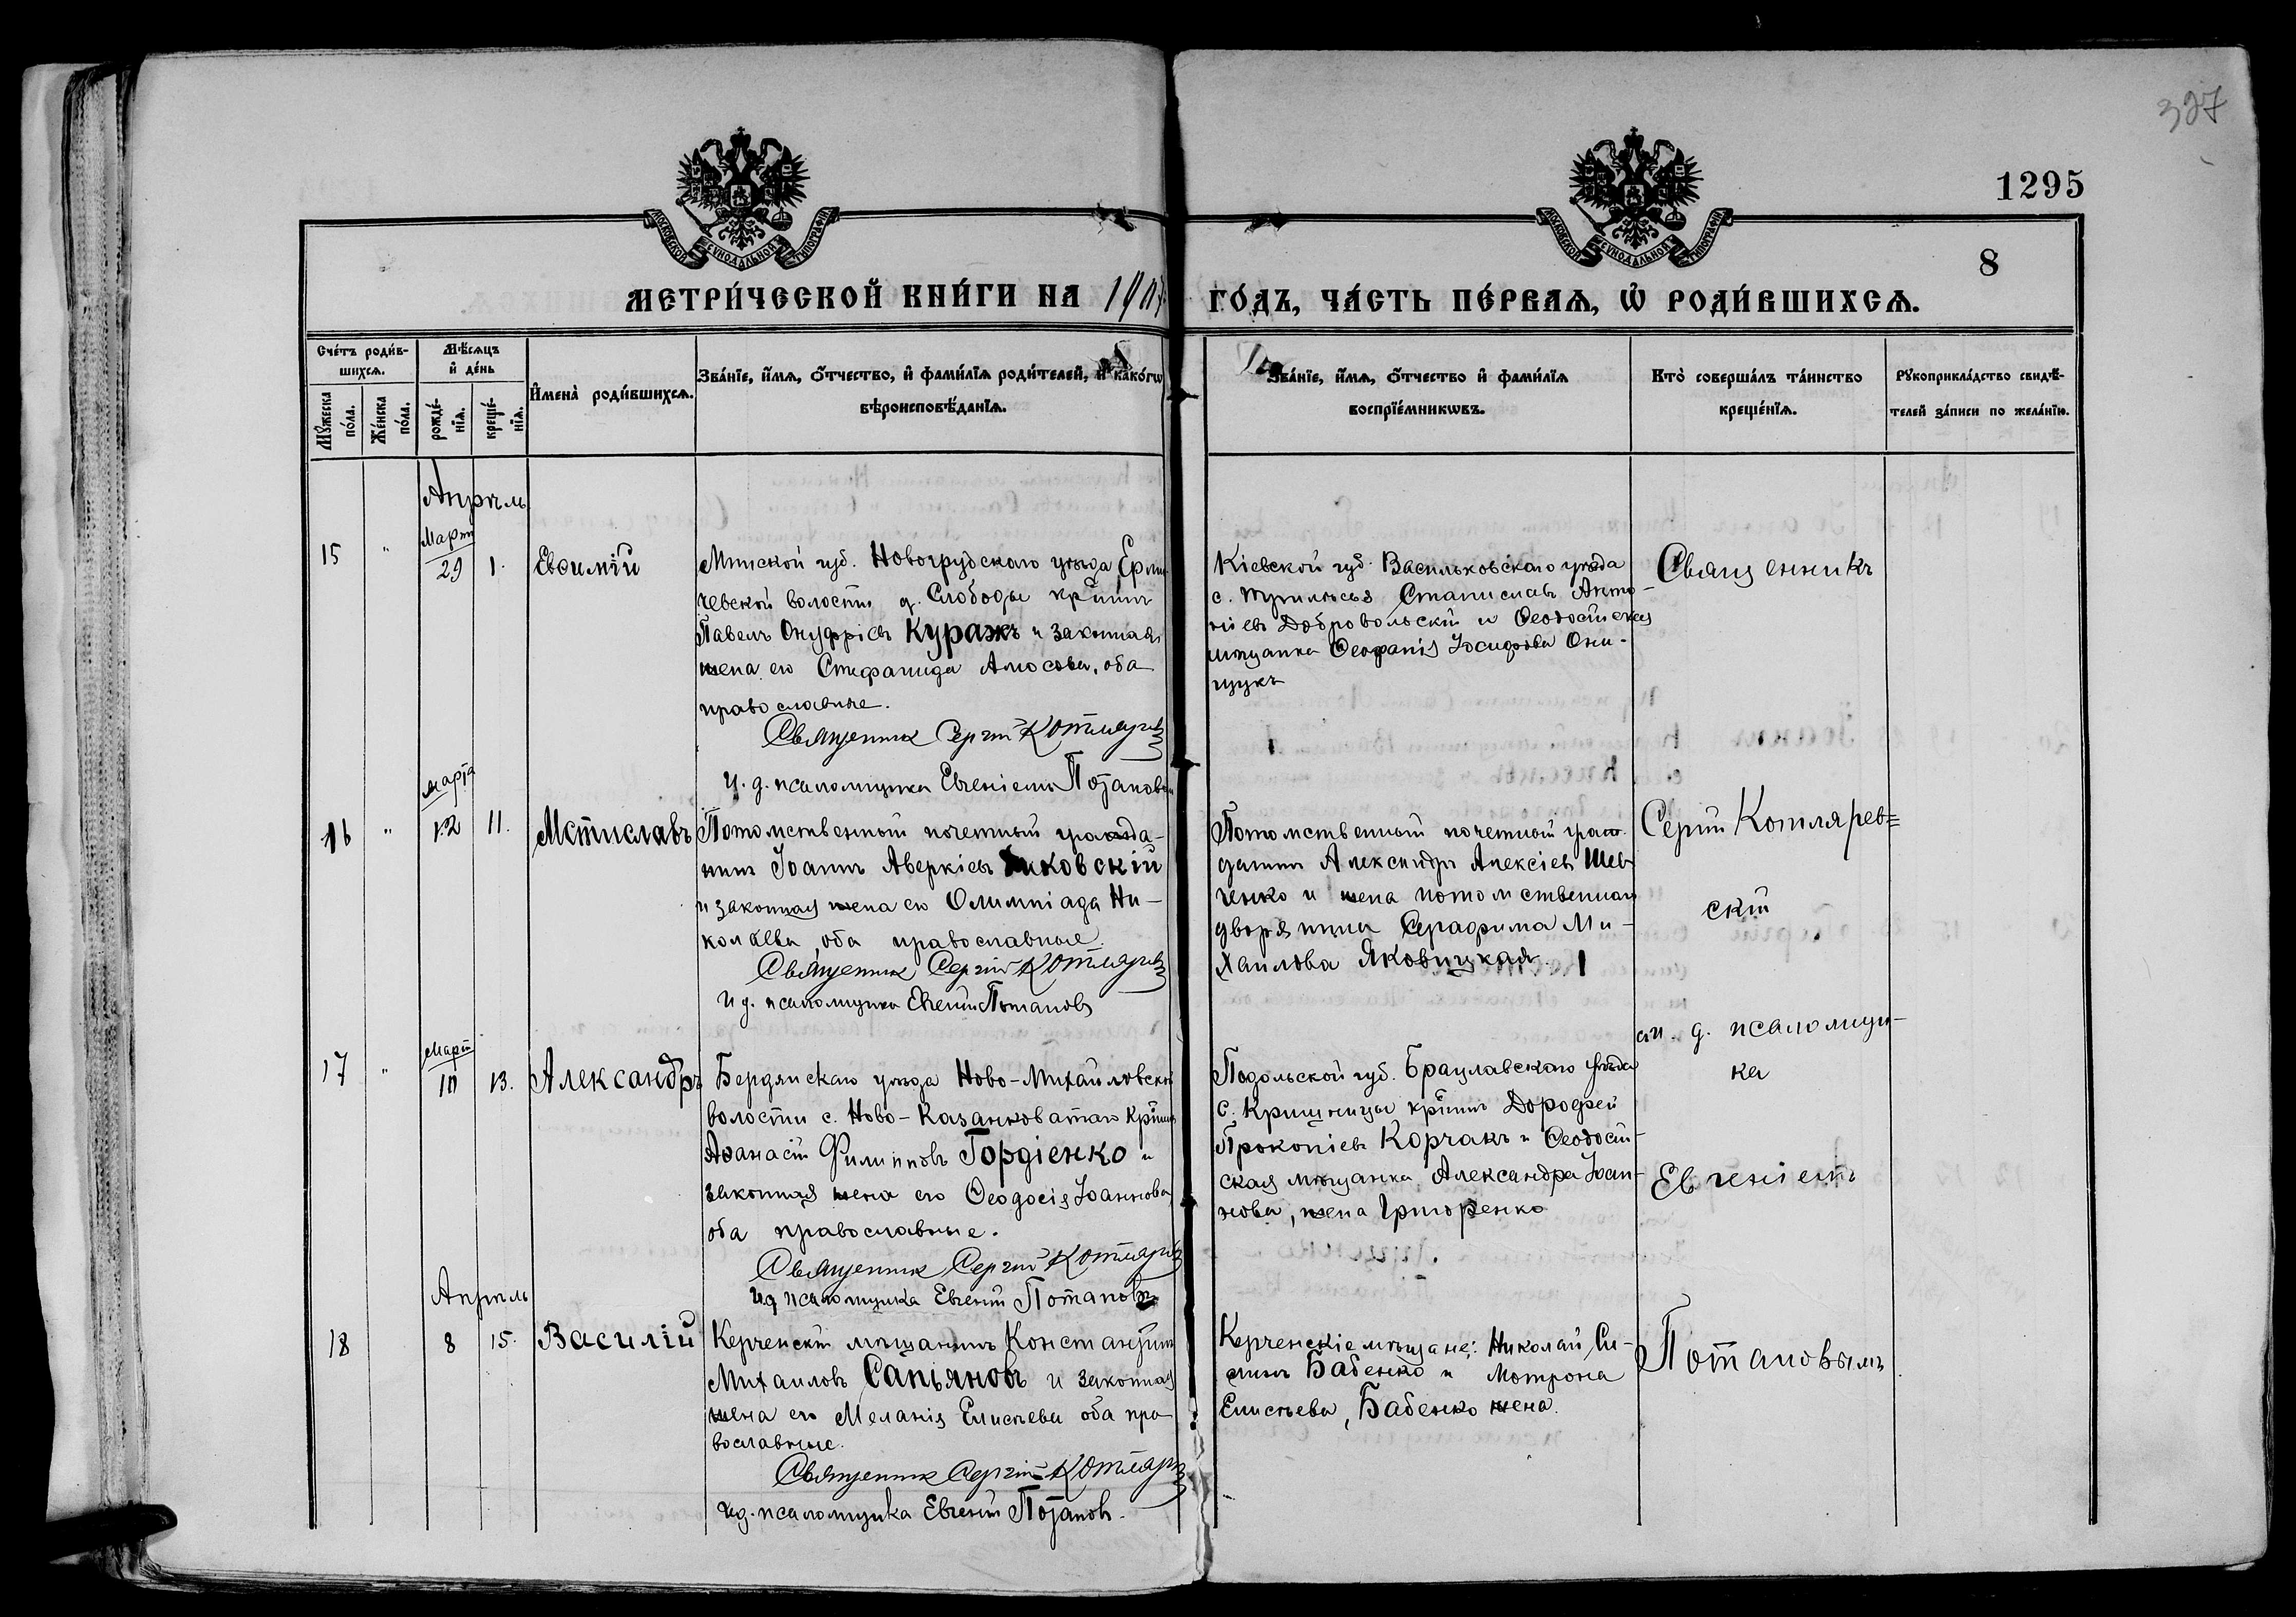 327
1295
8
МОСКОВСКОЙ СѴНОДАЛЬНОЙ ТИПОГРАФІИ
МОСКОВСКОЙ СѴНОДАЛЬНОЙ ТИПОГРАФІИ
МЕТРИ́ЧЕСКОЙ КНИ́ГИ НА 190 ГО́ДЪ, ЧА́СТЬ ПЕ́РВАЯ, Ѿ РОДИ́ВШИХСЯ.
Сче́тъ роди́в-
шихся.
Мꙋ́жеска по́ла.
Же́нска по́ла.
Мѣ́сяцъ и҆ де́нь
рожде́-
нїя.
креще́-
нїя.
И҆мена̀ роди́вшихся.
Зва́нїе, и҆́мя, ѻ҆́тчество, и҆ фами́лїя роди́телей, и҆ како́гѡ
вѣроисповѣ́данїя.
Зва́нїе, и҆́мя, ѻ҆́тчество и҆ фами́лїя
воспрїе́мникѡвъ.
Кто̀ соверша́лъ та́инство
креще́нїя.
Рꙋкоприкла́дство свидѣ́-
телей за́писи по жела́нїю.
Апрѣль
Март
15 " 29 1. Евѳимій
Минской губ. Новогрудскаго уѣзда
чевской волости д. Слободы кр̃нинъ
Павелъ Онуфріевъ Куражъ и законная
жена его Стефанида Амосова, оба
православные.
Священник Сергій Котлярев
И. д. псаломщика Евгеній Потапов
Кіевской губ. Васильковскаго уѣзда
с. Станиславъ Анто-
ніевъ Добровольскій и Ѳеодосійская
мѣщанка Ѳеофанія Іосифова Они-
щукъ
Священникъ
марта
16 " 12 11. Мстиславъ
Потомственный почетный гражда-
нинъ Іоаннъ Аверкіевъ
и законная жена его Олимпіада Ни-
колаева оба православные.
Священник Сергій Котлярев
И д. псаломщика Евгеній Потаповъ
Потомственный почетный граж-
данинъ Александръ Алексіевъ Шев-
ченко и жена потомственнаго
дворянина Серафима Ми-
хаилова Яковицкая.
Сергій Котлярев=
скій
Март
17 " 10 13. Александръ
Бердянскаго уѣзда Ново-Михайловской
волости с. Ново-Казанковатаго кр̃нинъ
Аѳанасій Филипповъ Гордіенко и
законная жена его Ѳеодосія Іоаннова
оба православные.
Священник Сергій Котлярев
И д псаломщика Евгеній Потаповъ
Подольской губ. Брацлавскаго уѣзда
с. Кришницы кр̃нинъ Дороѳей
Прокопіевъ Корчакъ и Ѳеодосій-
ская мѣщанка Александра Іоан-
нова, жена Григоренко
и. д. псаломщи-
ка
Евгеніемъ
Апрѣль
18 8 15. Василій
Керченскій мѣщанинъ Константинъ
Михаиловъ Сапьяновъ и законная
жена его Меланія Елисѣева оба пра-
вославные.
Священник Сергій Котлярев
И д. псаломщика Евгеній Потапов.
Керченскіе мѣщане: Николай Си-
минъ Бабенко и Мотрона
Елисѣева, Бабенко жена.
Потаповымъ